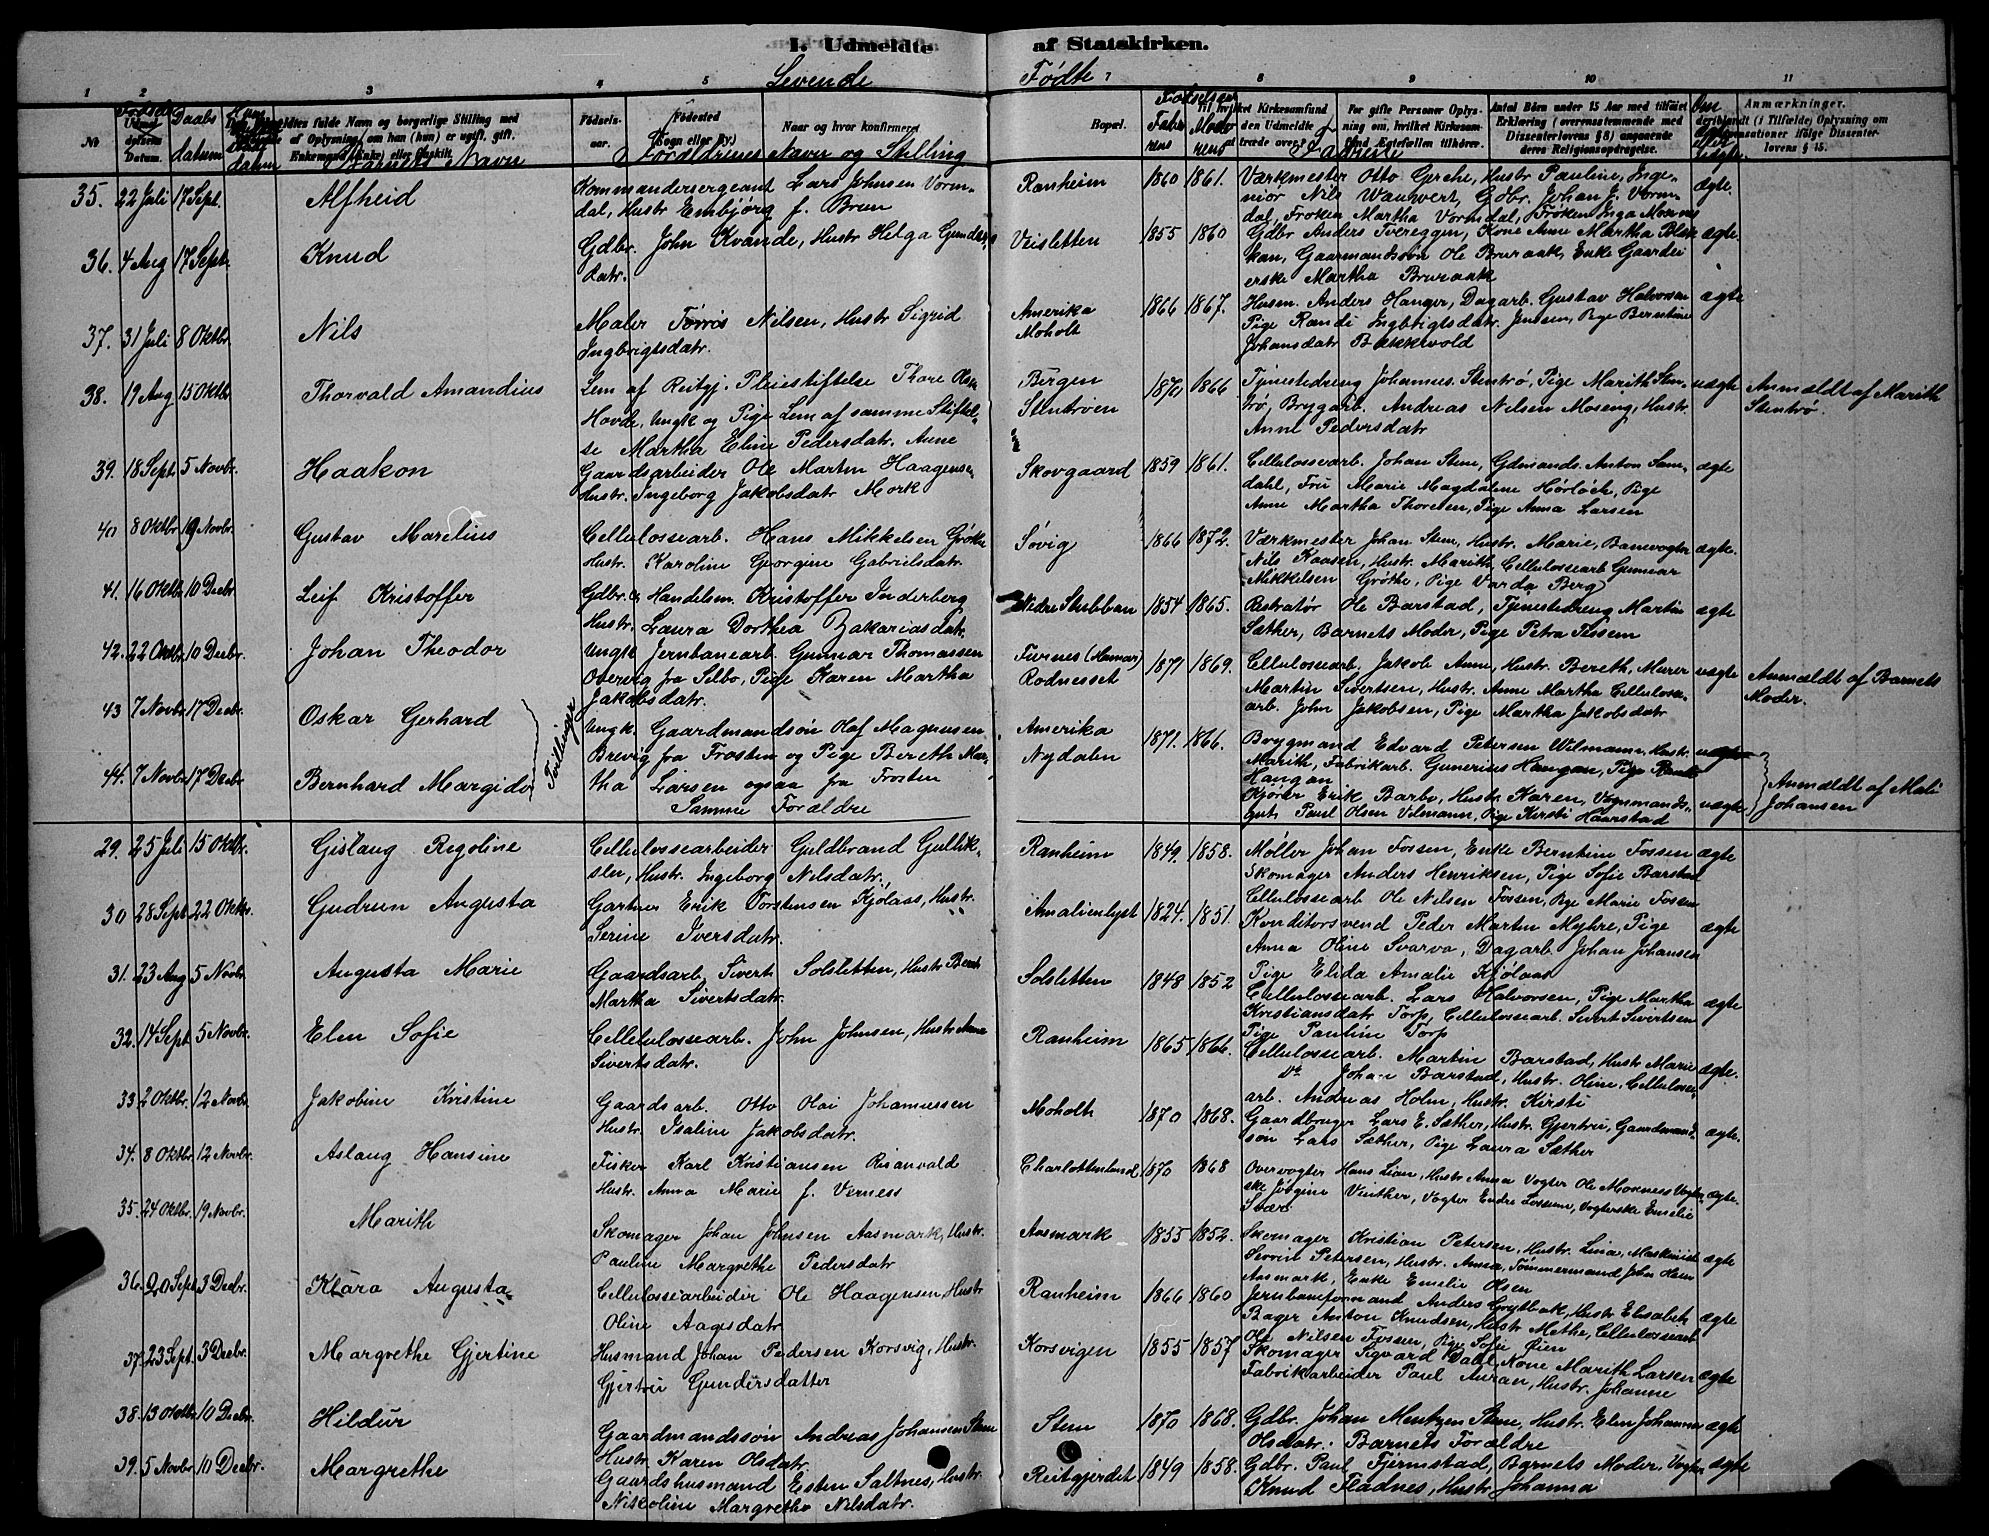 I. Udmeldte af Statskirken.
Levende Fødte
1 2 3 4 5 7 8 9 10 11
Daabs datum
Barnets Navn
Forældrenes Navn og Stilling
Fødselsaar Faderens Moderens
Faddere
Om ægte eller uægte
Fødsels-
aar.
Fødested
(Sogn eller By.)
Naar og hvor konfirmeret
Bopæl.
Til hvilket Kirkesamfund
den Udmeldte
træde over.
For gifte Personer Oplys-
ning om, hvilket Kirkesam-
fund Ægtefællen tilhører.
Antal Børn under 15 Aar med tilføiet
Erklæring (overensstemmende med
Dissenterlovens § 8) angaaende
deres Religionsopdragelse.
Anmærkninger.
(i Tilfælde) Oplysning om
lovens § 15.
35. 22 Juli 17 Sept. Alfheid Kommandersergeant Lars Johnsen Vorm-
dal, Hustr Embjørg f. Brun
Ranheim 1860 1861. Værkmester Otto Gerche, Hustr Pauline, Inge-
niør Nils Wauvert, Gdbr. Johan J. Vorm-
dal, Frøken Martha Vormdal, Frøken Inga Moxnes
ægte.
36. 4 Aug 17 Sept. Knud Gdbr. John Kvande, Hustr Helga Gunders
datr.
Veisletten 1855 1860 Gdbr Anders Tvereggen, Kone Anne Martha Blek
kan, Gaarmandssøn Ole Bruraak, Enke Gaarder
erske Martha Bruraak
ægte.
37. 31 Juli 8 Oktbr. Nils Maler Tørris Nilsen, Hustr Sigrid
Ingbrigtsdatr.
Amerika
Moholt 1866 1867. Husm. Anders Hanger, Dagarb. Gustav Halvorsen
Pige Randi Ingbrigtsdatr. Jensen, Pige Berntine
Johansdatr Bækkvold
ægte
38. 19 Aug 15 Oktbr. Thorvald Amandius Lem af Reitgj. Pleiestiftelse Thore Olsen
Hovde, Ungk og Pige Lem af samme Stiftel-
se Martha Eline Pedersdatr. Aune
Bergen
Stentrøen 1870 1866 Tjenestedreng Johannes Stentrø, Pige Marith Sten-
trø, Brygarb. Andreas Nilsen Moseng, Hustr.
Anne Pedersdatr
uægte Anmældt af Marith
Stentrø.
39. 18 Sept. 5 Novbr. Haakon Gaardsarbeider Ole Martin Haagensen
Hustr. Ingeborg Jakobsdatr Mork
Skovgaard 1859 1861. Cellulossearb. Johan Stene, Gdmands. Anton Sam-
dahl, Fru Marie Magdalene Hørløck, Pige
Anne Martha Thoresen, Pige Anna Larsen
ægte
40 8 Oktbr 19 Novbr. Gustav Marelius Cellulossearb. Hans Mikkelsen Grøtte
Hustr. Karoline Georgine Gabrielsdatr.
Søvig 1866 1872. Værkmester Johan Stene, Hustr. Marie, Banevogter
Nils Kaasen, Hustr. Marith, Cellulossearb Gunnar
Mikkelsen Grøtte, Pige Varda Berg
ægte.
41. 16 Oktbr 10 Decbr. Leif Kristoffer Gdbr. og Handelsm. Kristoffer Inderberg
Hustr. Laura Dorthea Zakariasdatr.
Nedre Stubban 1854 1865. Restratør Ole Barstad, Tjenestedreng Martin
Sæther, Barnets Moder, Pige Petra Tessem
ægte
42. 22 Oktbr. 10 Decbr. Johan Theodor Ungk. Jernbanearb. Gunnar Thomassen
Overvig fra Selbo, Pige Karen Martha
Jakobsdatr.
Furnes (Hamar)
Rodnesset 1871 1869. Cellulossearb. Jakob Aune, Hustr. Bereth, Murer
Martin Sivertsen, Hustr. Anne Martha Cellulosse-
arb. John Jakobsen, Pige Martha Jakobsdatr
uægte Anmældt af Barnets
Moder.
43 7 Novbr. 17 Decbr. Oskar Gerhard Tvillinger Ungk. Gaardmandsøn Olaf Magnussen
Brevig fra Frosten og Pige Bereth Mar-
tha Larsen ogsaa fra Frosten
Amerika
Nydalen 1871. 1866. Brygmand Edvard Petersen Wilmann, Hustr.
Marith, Fabrikarb. Gunerius Haugan, Pige
Haugan
uægte
44. 7 Novbr. 17 Decbr Bernhard Margido Samme Forældre
Kjører Erik Barbo, Hustr. Karen, Vognmands-
gut Paul Olsen Vilmann, Pige Kirsti Haarstad
uægte Anmældt af Mali
Johansen
29. 25 Juli 15 Oktbr. Gislaug Regoline Cellulossearbeider Guldbrand Gullik-
sen, Hustr. Ingeborg Nilsdatr.
Ranheim 1849. 1858. Møller Johan Fossen, Enke Berntine Fossen
Skomager Anders Henriksen, Pige Sofie Barstad
Cellulossearb Ole Nilsen Fossen, Pige Marie Fossen
ægte
30 28 Sept 22 Oktbr. Gudrun Augusta Gartner Erik Torstensen Kjølaas, Hustr.
Serine Iversdatr.
Amalienlyst 1824. 1851. Konditorsvend Peder Martin Myhre, Pige
Anna Oline Svarva, Dagarb. Johan Johansen
Pige Elida Amalie Kjølaas
ægte
31. 23 Aug 5 Novbr. Augusta Marie Gaardsarb. Sivert Solsletten, Hustr Beret
Martha Sivertsdatr.
Solsletten 1848 1852 Cellulossearb. Lars Halvorsen, Pige Martha
Kristiansdatr Torp, Cellulossearb. Sivert Sivertsen
Pige Pauline Torp
ægte
32. 14 Sept. 5 Novbr. Elen Sofie Cellelulossearb. John Johnsen, Hustr Anne
Sivertsdatr.
Ranheim 1865 1866. Cellulossearb. Martin Barstad, Hustr Marie
Do Johan Barstad, Hustr. Oline, Cellulosse-
arb. Andreas Holm, Hustr. Kirsti
ægte.
33. 2 Oktbr. 12 Novbr. Jakobine Kristine Gaardsarb. Otto Olai Johannessen
Hustr. Isaline Jakobsdatr.
Moholt 1870 1868. Gaardbruger Lars E. Sæther, Hustr. Gjertru, Gaardmand-
søn Lars Sæther, Pige Laura Sæther
ægte.
34. 8 Oktbr. 12 Novbr. Aslaug Hansine Fisker Karl Kristiansen Risanvold
Hustr. Anna Marie f. Verness
Charlottenlund 1870 1868 Overvogter Hans Lian, Hustr Anna Vogter Ole Moxness Vogter-
ske Jørgine Vinther, Vogter Endre Lossum, Vogterske Emelie
Svære
ægte.
35. 24 Oktbr. 19 Novbr. Marith Skomager Johan Johnsen Aasmark, Hustr.
Pauline Margrethe Pedersdatr
Aasmark 1855 1852. Skomager Kristian Petersen, Hustr. Lina, Maskinist
Severin Petersen, Hustr. Anna, Tømmermand John Olsen
Aasmark, Enke Emelie Olsen
ægte
36. 20 Sept 3 Decbr. Klara Augusta Cellulossearbeider Ole Haagensen, Hustr
Oline Aagesdatr
Ranheim 1866 1860 Jernbaneformand Anders Grytbak, Hustr Elisabeth
Bager Anton Knudsen, Hustr Methe, Cellulossearb
Ole Nilsen Fossen, Pige Sofie Øien
ægte
37. 23 Sept. 3 Decbr. Margrethe Gjertine Husmand Johan Pedersen Korsvig, Hustr.
Gjertru Gundersdatter
Korsvigen 1855 1857 Skomager Sigvard Dahl, Kone Marith Larsen
Fabrikarbeider Paul Auran, Hustr. Johanne
ægte
38. 13 Oktbr. 10 Decbr. Hildur Gaardmandssøn Andreas Johansen Stene
Hustr. Karen Olsdatr.
Stene 1870 1868. Gdbr. Johan Mentzen Stene, Hustr. Elen Johanna
Olsdatr. Barnets Forældre
ægte
39. 5 Novbr 10 Decbr. Margrethe Gaardshusmand Esten Saltnes, Hustr.
Nikoline Margrethe Nilsdatr.
Reitgjerdet 1849 1858. Gdbr. Paul Fjermstad, Barnets Moder, Vogter
Knud Fladnes, Hustr Johanna
ægte